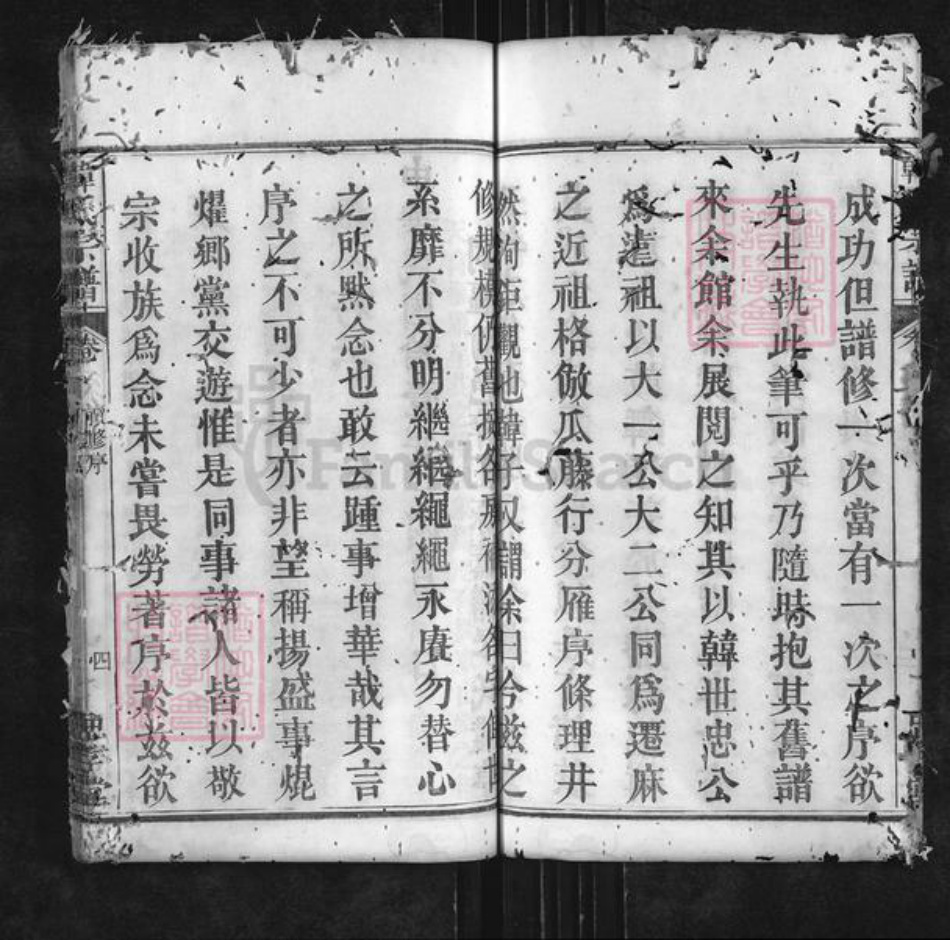 成功但譜修一次當有一次之序欲
先生執此筆可乎乃隨時抱其舊譜
來余館余展閱之知其以韓世忠公
為遠祖以大一公大二公同為遷麻
之近祖格倣瓜藤行分雁序條理井
然可觀也韓子又謂余曰今茲之
修規模仍舊
系靡不分明繼繼繩繩永賡勿替心
之所默念也敢云踵事增華哉其言
序之不可少者亦非望稱揚盛事焜
燿鄉黨交遊惟是同事諸人皆以敬
宗收族為念未嘗畏勞著序於茲欲
韓氏宗譜
卷
續修序
四
FamilySearch